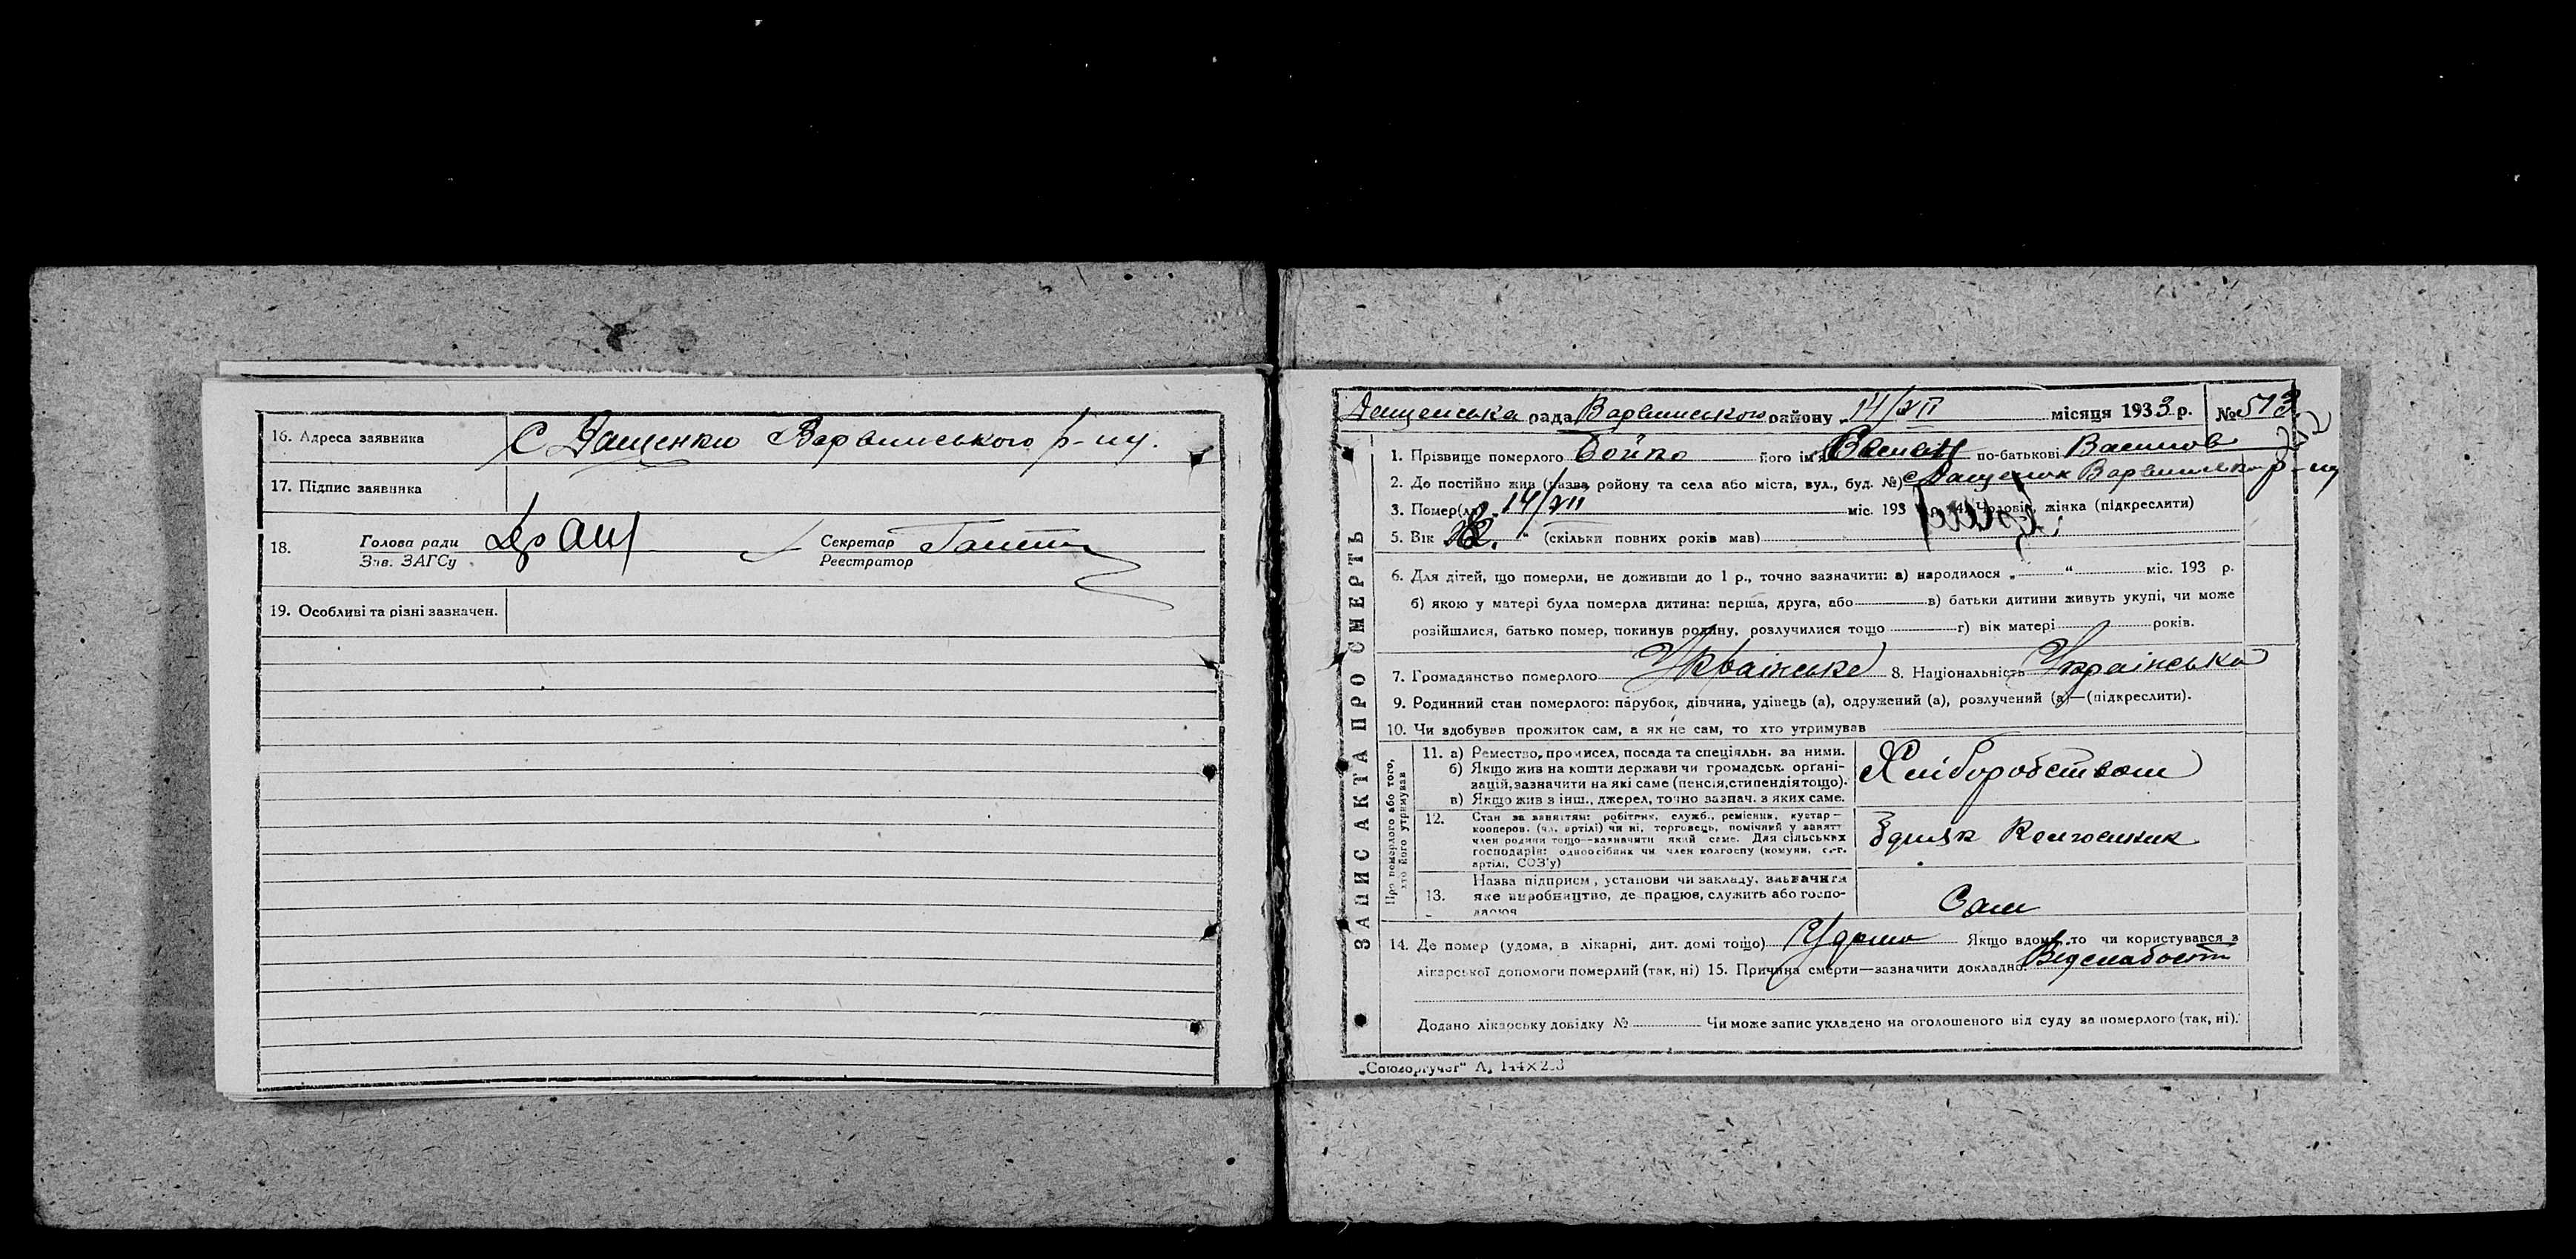 16. Адреса заявника С Дащенки Варвинського р-ну.
17. Підпис заявника
18. Голова ради Секретар
Зав. ЗАГСу Реєстратор
19. Особливі та різні зазначен.
ЗАПИС АКТА ПРО СМЕРТЬ
Дащенська рада Варвинського району 14/VII місяця 1933 р. № 513
1. Прізвище померлого Бойко його ім'я по-батькові Васильов
2. Де постійно жив (назва району та села або міста, вул., буд. №) с Дащенки Варвинсько р-ну
3. Помер(ла) 14/VII міс. 193 р. 4. Чоловік, жінка (підкреслити)
5. Вік " (скільки повних років мав)
6. Для дітей, що померли, не доживши до 1 р., точно зазначити: а) народилося „ " міс. 193 р.
б) якою у матері була померла дитина: перша, друга, або в) батьки дитини живуть укупі, чи може
розійшлися, батько помер, покинув родину, розлучилися тощо г) вік матері років.
7. Громадянство померлого Українське 8. Національність Українська
9. Родинний стан померлого: парубок, дівчина, удівець (а), одружений (а), розлучений (а)—(підкреслити).
10. Чи здобував прожиток сам, а як не сам, то хто утримував
Про померлого або того, хто його утримував
11. а) Ремество, промисел, посада та спеціяльн. за ними.
б) Якщо жив на кошти держави чи громадськ. органі-
зацій, зазначити на які саме (пенсія, стипендія тощо).
в) Якщо жив з інш., джерел, точно зазнач. з яких саме.
Хліборобством
12. Стан за заняттям: робітник, служб., ремісник, кустар—
кооперов. (чл. артілі) чи ні, торговець, помічний у занятт
член родини тощо—зазначити який саме. Для сільських
господарів: одноосібник чи член колгоспу (комуни, с.-г.
артілі, СОЗ'у)
Бідняк Колгоспник
13. Назва підприєм, установи чи закладу, зазначити
яке виробництво, де працює, служить або госпо-
дарює
Сам
14. Де помер (удома, в лікарні, дит. домі тощо) Удома Якщо вдома, то чи користувався з
лікарської допомоги померлий (так, ні) 15. Причина смерти—зазначити докладно Від слабости
Додано лікарську довідку № Чи може запис укладено на оголошеного від суду за померлого (так, ні).
„Союзоргучет"